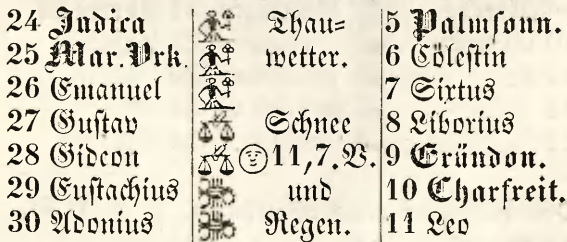 24 Judica Thau= 5 Palmsonn.
25 Mar. Vrk. wetter. 6 Cölestin
26 Emanuel 7 Sixtus
27 Gustav Schnee 8 Liborius
28 Gideon 11,7. V. 9 Gründon.
29 Eustachius und 10 Charfreit.
30 Adonius Regen. 11 Leo